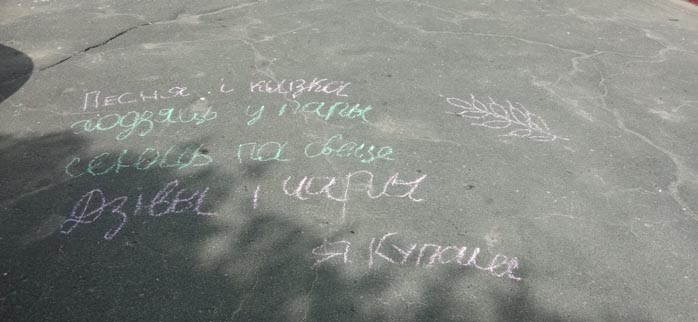 Песня і казка
ходзяць у пары
сеюць па свеце
Дзівы і чары
Я Купала